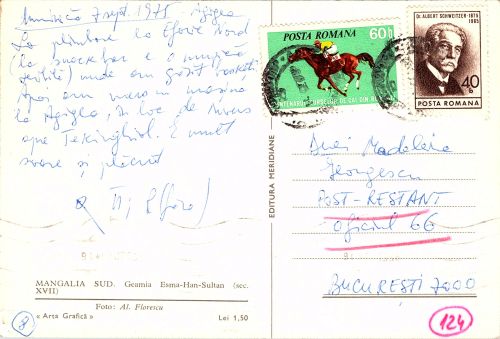 Duminică 7 sept. 1975 Agigea
La plimbare la Eforie Nord
(la snackbar e o muzică
unde am găsit
Apoi am mers cu mașina
la Agigea, în loc de
spre Techirghiol. E mult
soare și plăcut
MANGALIA SUD. Geamia Esma-Han-Sultan (sec.
XVII)
Foto: Al. Florescu
« Arta Grafică »
Lei 1,50
8
EDITURA MERIDIANE
POSTA ROMANA
60 b
CENTENARUL CURSELOR DE CAI DIN
DR. ALBERT SCHWEITZER - 1875
1965
40 b
POSTA ROMANA
Madeleia
Georgescu
POST-RESTANT
oficiul 66
BUCUREȘTI 7000
124